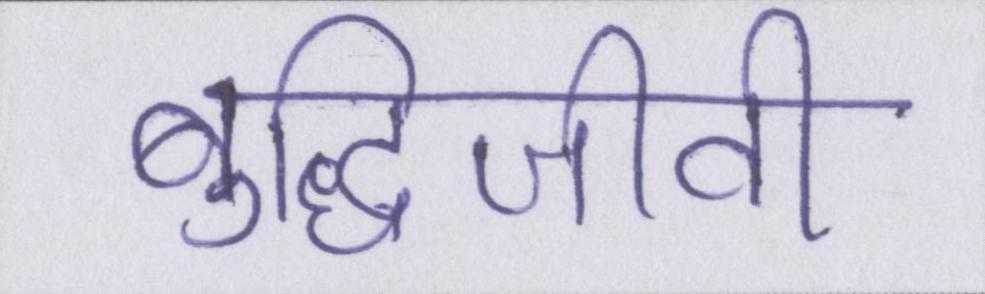 बुद्धिजीवी